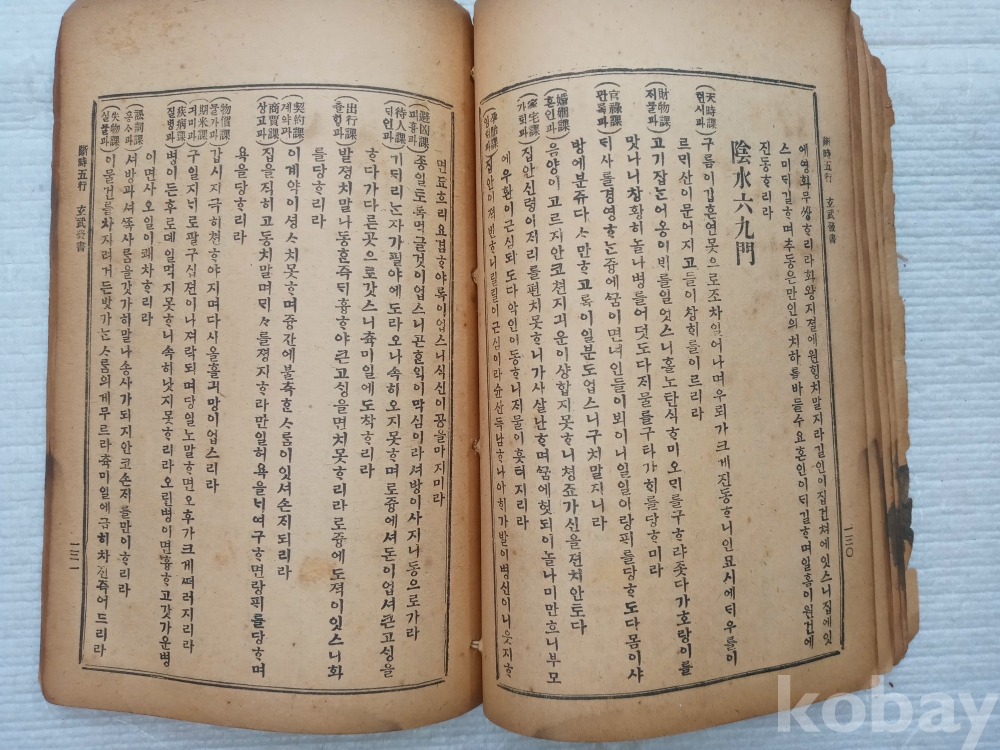 斷時五行 玄武發書 一三〇
에영화무쌍ᄒᆞ리라화왕지졀에원힝치말지라길인이집건쳐에잇스니집에잇
스미ᄃᆡ길ᄒᆞ며추동은만인의치하를바들수요혼인이ᄃᆡ길ᄒᆞ며일흠이원건에
진동ᄒᆞ리라
陰水六九門
(天時課 텬시과)구름이깁흔연못으로조차일어나며우뢰가크게진동ᄒᆞ니인묘시에ᄃᆡ우를이
르ᄆᆡ산이문어지고들이창히를이르리라
(財物課 ᄌᆡ물과)고기잡는어옹이ᄇᆡ를일엇스니홀노탄식ᄒᆞ미오ᄆᆡ를구ᄒᆞ랴좃다가호랑이를
맛나니창황히놀나병를어덧도다ᄌᆡ물를구타가히를당ᄒᆞ미라
(官祿課 관록과)ᄃᆡ사를경영ᄒᆞ는즁에ᄭᅮᆷ이면녀인들이뵈이니일일아랑픠를당ᄒᆞ도다몸이샤
방에분쥬다ᄉᆞ만ᄒᆞ고록이일분도업스니구치말지니라
(婚姻課 혼인과)음양이고르지안코쳔지긔운이상합지못ᄒᆞ니쳥죠가신을젼치안토다
(家宅課 가ᄐᆡᆨ과)집안신령이자리를편치못ᄒᆞ니가사살난ᄒᆞ며ᄭᅮᆷ에헛되이놀나미만흐니부모
에우환이근심되도다악인이동ᄒᆞ니ᄌᆡ물이훗터지리라
집안이젹빈ᄒᆞ니일일이근심이라슌산득남ᄒᆞ나아히가발이병신이니웃지ᄒᆞ
면묘흐리요겸ᄒᆞ야록이업스니식신이공을마지미라
(避凶課 피흉과)종일토록먹글것이업스니곤ᄒᆞᆷ이막심이라셔방이사지니동으로가라
(待人課 ᄃᆡ인과)기ᄃᆡ리는자가필야에도라오나속히오지못ᄒᆞ며로즁에셔돈이업셔큰고싱을
ᄒᆞ다가다른곳으로갓스니츅미일에도착ᄒᆞ리라
(出行課 츌ᄒᆡᆼ과)발졍치말나동ᄒᆞᆫ즉ᄃᆡ흉ᄒᆞ야큰고싱을면치못ᄒᆞ리라로즁에도젹이잇스니화
를당ᄒᆞ리라
(契約課 계약과)이계약이셩ᄉᆞ치못ᄒᆞ며즁간에불측ᄒᆞᆫᄉᆞᄅᆞᆷ이잇셔손ᄌᆡ되리라
(商賈課 상고과)집을직히고동치말며ᄆᆡᄉᆞ를졍지ᄒᆞ라만일허욕을ᄂᆡ여구ᄒᆞ면랑픠를당ᄒᆞ며
욕을당ᄒᆞ리라
(物價課 물가과)갑시지극히쳔ᄒᆞ야지며다시올흘긔망이업스리라
(期米課 긔미과)구일지ᄂᆡ로팔구십젼이나져락되며당일노말ᄒᆞ면오후가크게ᄯᅥ러지리라
(疾病課 질병과)병이든후로뎨일먹지못ᄒᆞ니속히낫지못ᄒᆞ리라오린병이면흉ᄒᆞ고갓가운병
이면사오일이쾌차ᄒᆞ리라
(訟詞課 송ᄉᆞ과)셔방과셔ᄶᅩᆨ사ᄅᆞᆷ을갓가히말나송사가되지안코손ᄌᆡ를만이ᄒᆞ리라
(失物課 실물과)이물건를차지려거든밧가는ᄉᆞᄅᆞᆷ의게무르라츅미일에급히차진즉어드리라
斷時五行 玄武發書 一三一
kobay